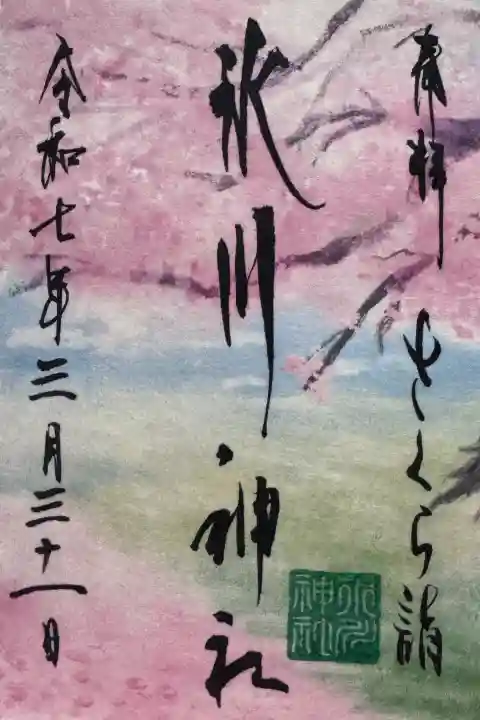 奉拝 さくら詣
氷川神社
令和七年三月三十一日
氷川神社